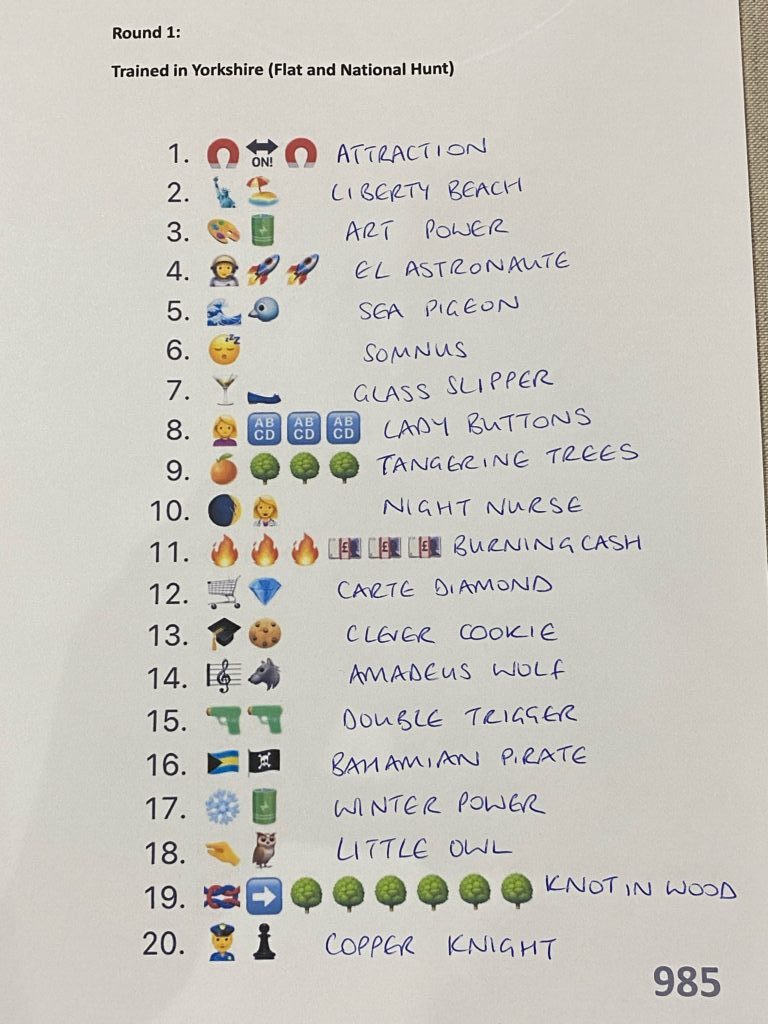 Round 1:
Trained in Yorkshire (Flat and National Hunt)
1. ON! ATTRACTION
2. LIBERTY BEACH
3. ART POWER
4. EL ASTRONAUTE
5. SEA PIGEON
6. SOMNUS
7. GLASS SLIPPER
8. AB CD AB CD AB CD LADY BUTTONS
9. TANGERINE TREES
10. NIGHT NURSE
11. £ £ £ BURNING CASH
12. CARTE DIAMOND
13. CLEVER COOKIE
14. AMADEUS WOLF
15. DOUBLE TRIGGER
16. BAHAMIAN PIRATE
17. WINTER POWER
18. LITTLE OWL
19. KNOT IN WOOD
20. COPPER KNIGHT
985